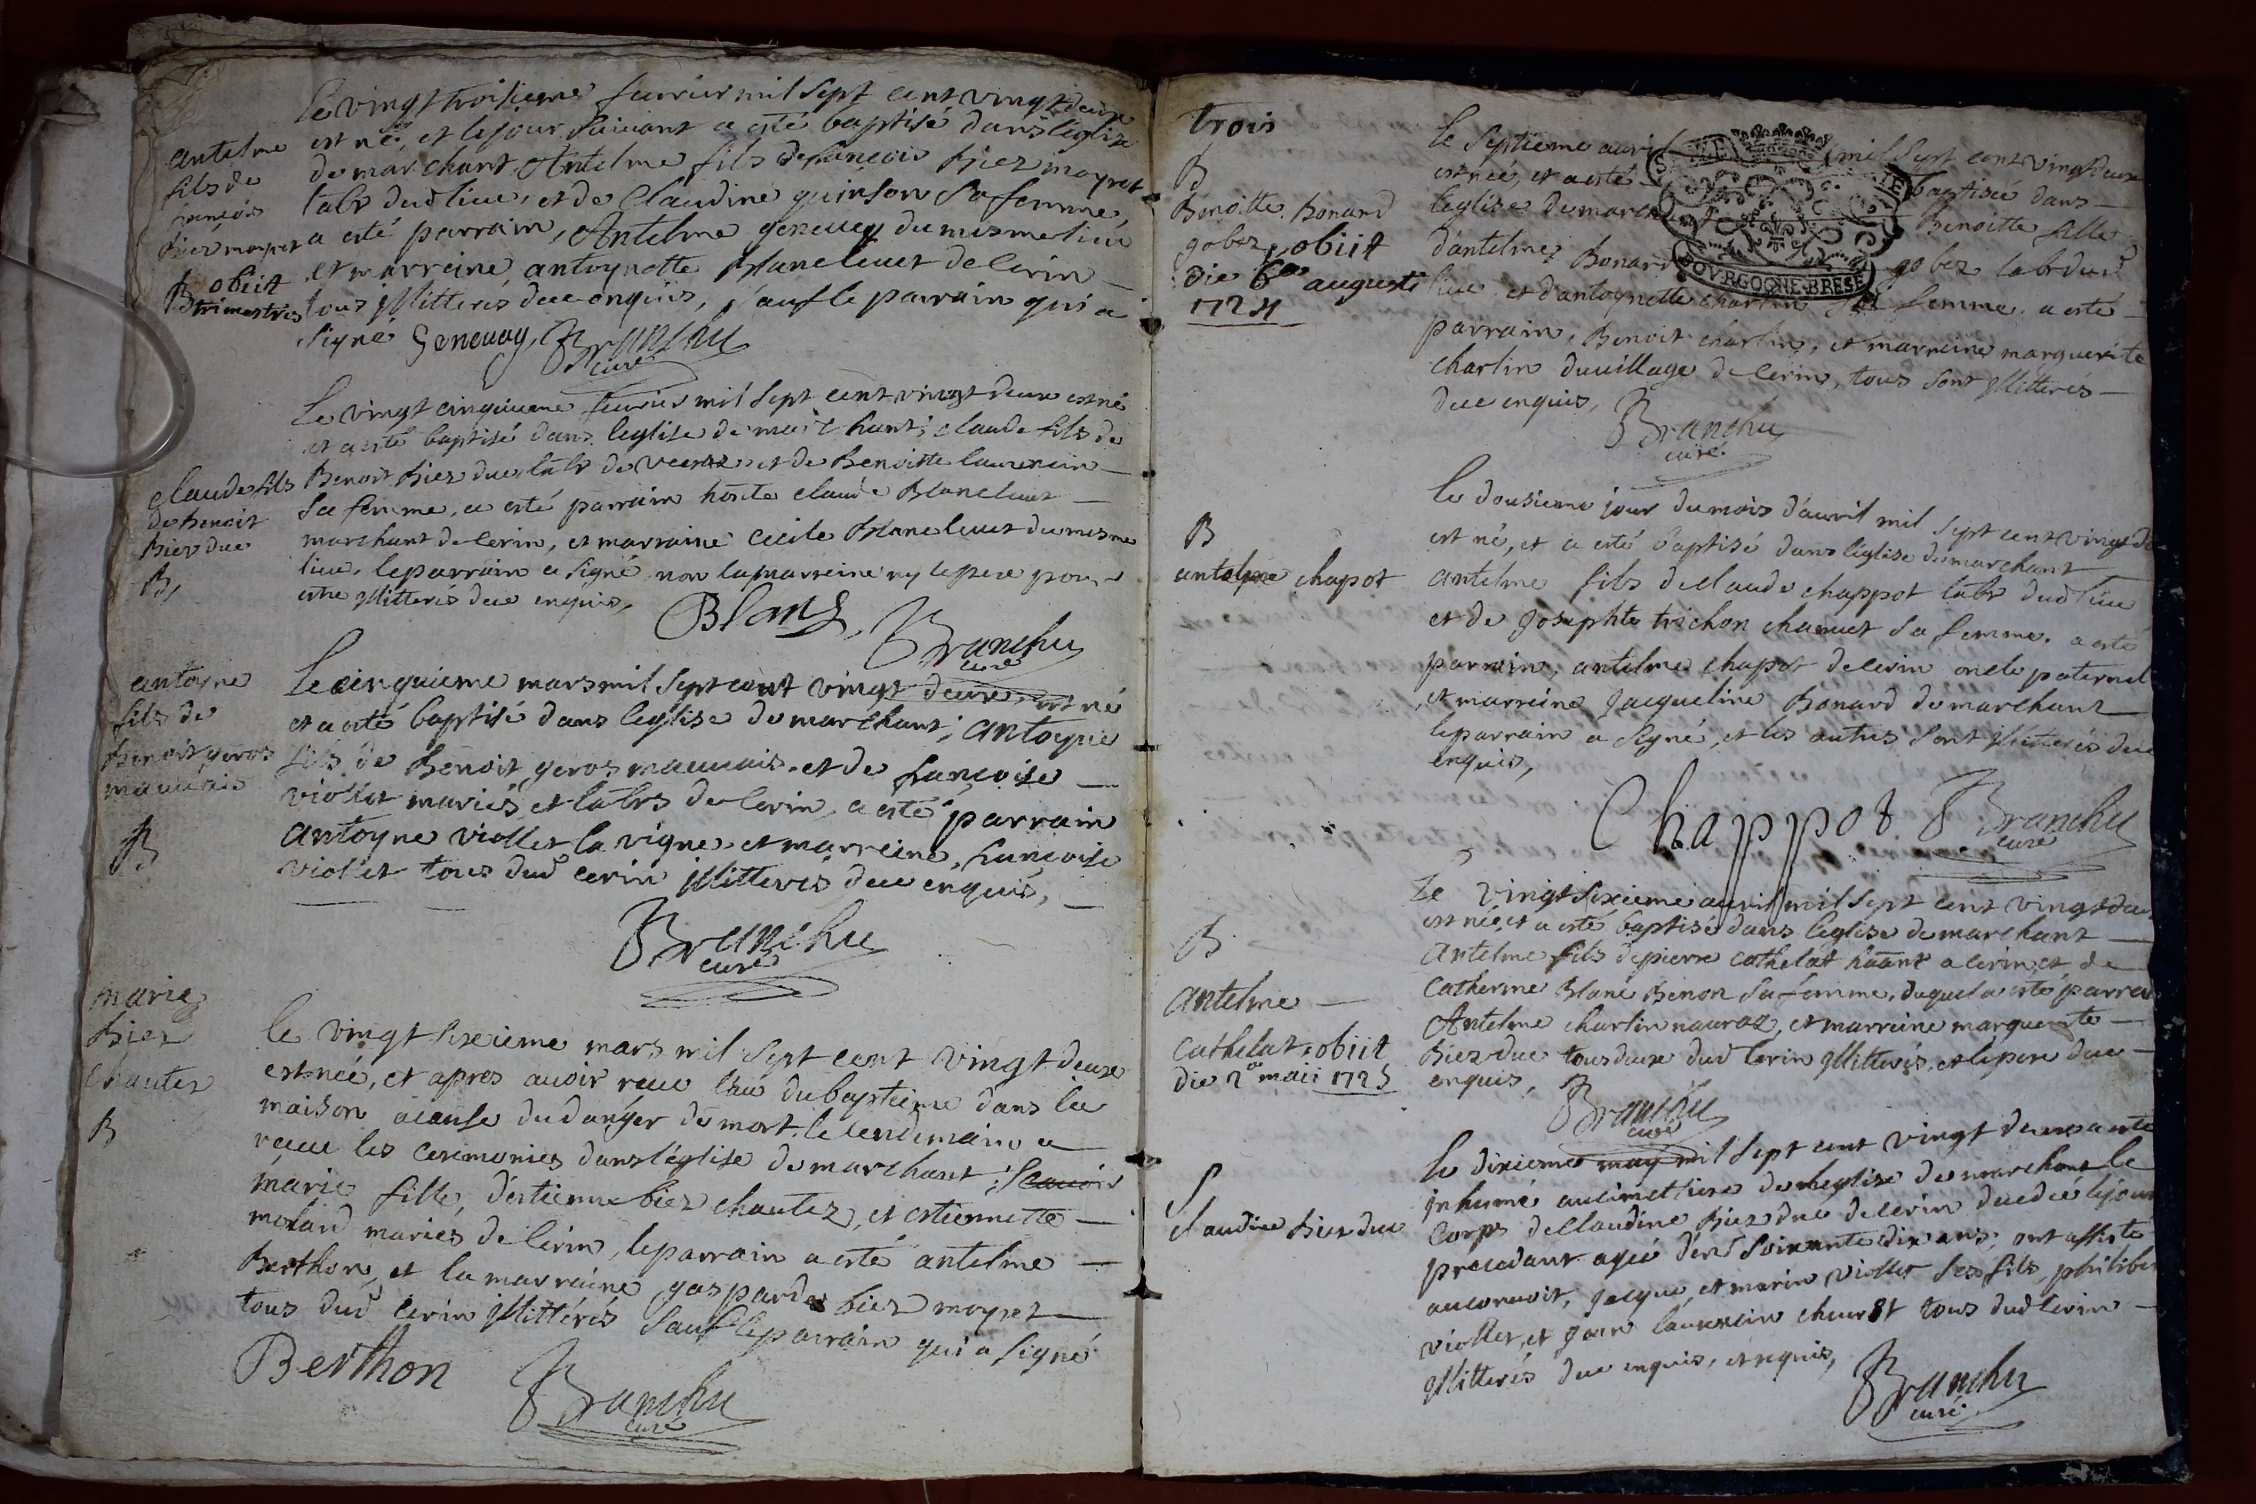 antelme
fils de
françois
biez moyret
obiit
B trimestris
Le vingt troisieme feuvrier mil sept cent vingt deux
est né, et le jour suivant a esté baptisé dans leglise
de marchant Antelme fils de françois biez moyret
labr dud lieu, et de Claudine quinson sa femme,
a esté parrain, Antelme geneuey du mesme lieu
et marreine antoynette blancleuet de cerin
tous jllitterés deue enquis, sauf le parrain qui a
signé Genevay, Branchu
curé
claude fils
de benoit
biez due
B,
Le vingt cinquieme feuvrier mil sept cent vingt deux est né
et a esté baptisé dans leglise de marchant; claude fils de
Benoit biez due labr de et de Benoitte laurencin
sa femme, a esté parrain honte claude Blancleuet
marchant de cerin, et marraine cecile blancleuet du mesme
lieu, le parrain a signé non la marreine ny le pere pour
estre jllitteres deue enquis,
Blanc, Branchu
curé
antoyne
fils de
benoit geros
mauuais
B
Le cinquieme mars mil sept cent vingt deux, est né
et a esté baptisé dans leglise de marchant; antoyne
fils de Benoit geros mauuais, et de françoise
viollet mariés, et labrs de cerin, a esté parrain
antoyne viollet la vigne, et marreine, françoise
viollet tous dud cerin jllitterés deue enquis,
Branchu
curé
marie
biez
chautez
B
le vingt sixieme mars mil sept cent vingt deux
est née, et apres auoir receu l'eau du baptieme dans la
maison acause du danger de mort, le lendemain a
receu les ceremonies dans l'église de marchant; scauoir
marie fille, d'estienne biez chautez, et estiennette
molard mariés de cerin, le parrain a esté antelme
Berthon, et la marraine, gasparde biez moyret
tous dud cerin jllittérés sauf le parrain qui a signé
Berthon Branchu
curé
trois
B
Benoitte Bonard
gobez, obiit
die 6a augusti
1724
Le septieme auril mil sept cent vingt deux
est née, et a esté baptisée dans
leglise de marchant Benoitte fille
d'antelme Bonard gobez labr dud
lieu et d'antoynette charlin sa femme. a esté
parrain, Benoit charlin, et marreine marguerite
charlin du village de cerin, tous sont jllitterés
deue enquis,
Branchu
curé
B
antelme chapot
Le dousieme jour du mois d'auril mil sept cent vingt de
est né, et a esté baptisé dans l'église de marchant
antelme fils de claude chappot labr dud lieu
et de Josephte trichon chanuet sa femme. a esté
parrain, antelme chapot de cerin oncle paternel
et marreine Jacqueline Bonard de marchant
le parrain a signé, et les autres sont jllitterés deue
enquis,
Chappot. Branchu
curé
B
antelme
cathelat, obiit
die 2a maii 1725
Le vingt sixieme auril mil sept cent vingt deux
est né, et a esté baptisé dans leglise de marchant
antelme fils de pierre cathelat h̃ãant a cerin, et de
Catherine Blanc Benon sa femme, duquel a esté parrein
Antelme charlin nauraz, et marreine marguerite
Biez due tous deux dud cerin jllitterés, et le pere due
enquis,
Branchu
curé
S
claudine biez due
Le dixieme may mil sept cent vingt deux a esté
inhumé au cimettiere de leglise de marchant le
corps de claudine biez due de cerin decedée le jour
precedant agée d'enu soixante dix ans; ont assisté
au conuoit, jacque, et marin viollet ses fils, philiber
viollet, et jean laurencin cheurot tous dud cerin
jllitterés due enquis, et requis,
Branchu
curé
BOVRGOGNE BRESE